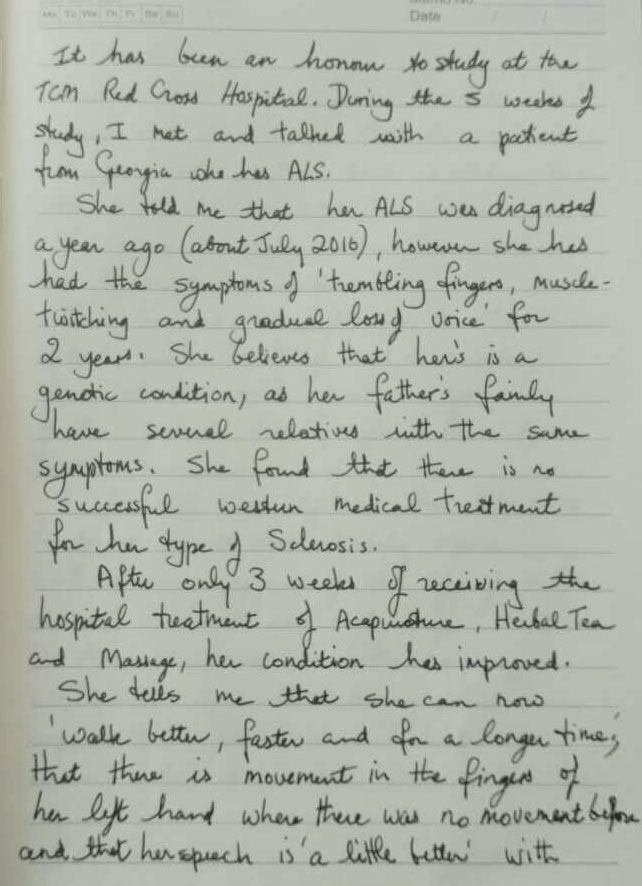 Mo Tu We Th Fr Sa Su
Memo No.
Date / /
It has been an honour to study at the
TCM Red Cross Hospital. During the 5 weeks of
study, I met and talked with a patient
from Georgia who has ALS.
She told me that her ALS was diagnosed
a year ago (about July 2016), however she has
had the symptoms of 'trembling fingers, muscle-
twitching and gradual loss of voice' for
2 years. She believes that her's is a
genetic condition, as her father's family
have several relatives with the same
symptoms. She found that there is no
successful western medical treatment
for her type of Sclerosis.
After only 3 weeks of receiving the
hospital treatment of Acupuncture, Herbal Tea
and Massage, her condition has improved.
She tells me that she can now
'walk better, faster and for a longer time',
that there is movement in the fingers of
her left hand where there was no movement before
and that her speech is 'a little better' with